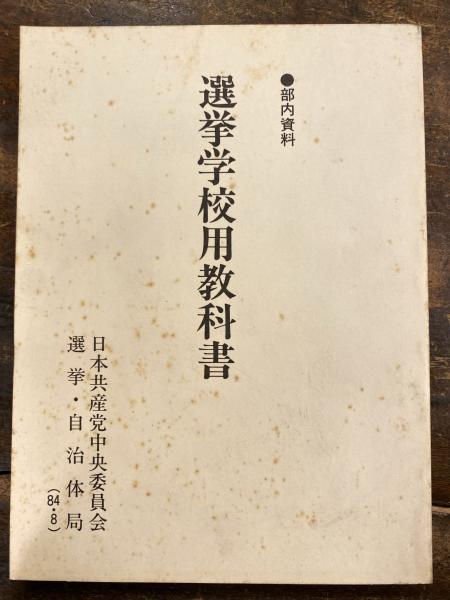 ●部内資料
選挙学校用教科書
日本共産党中央委員会
選挙・自治体局
(84・8)